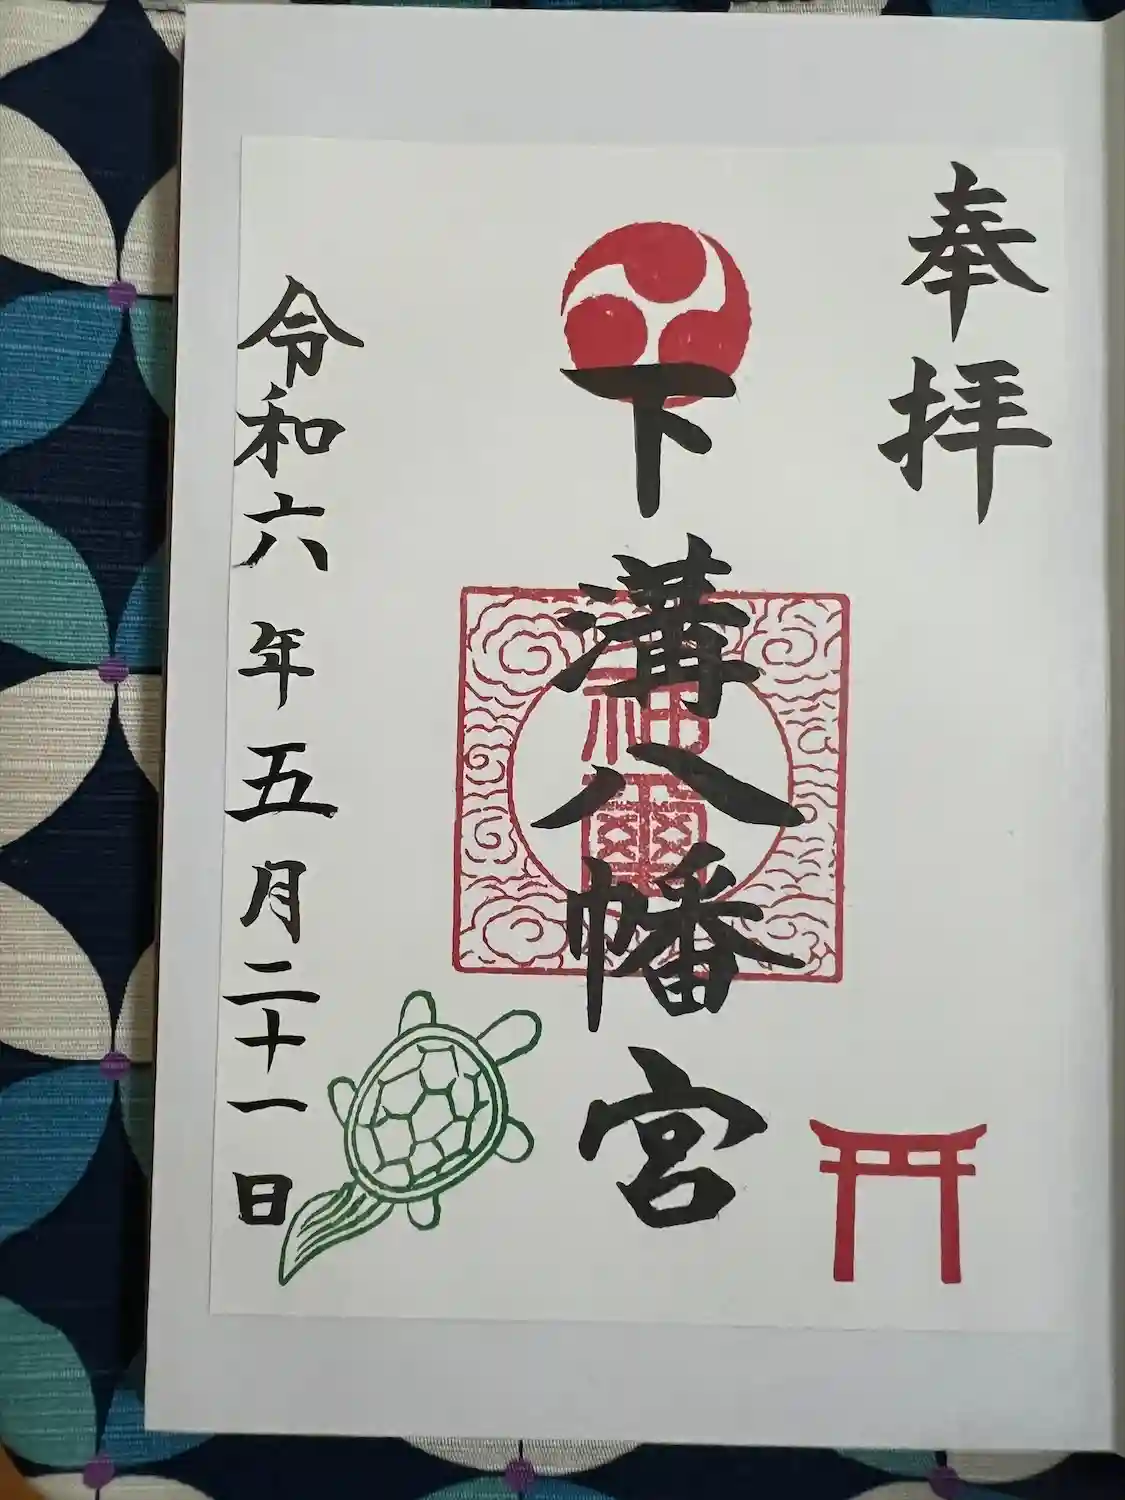 奉拝
下溝八幡宮
神璽
令和六年五月二十一日